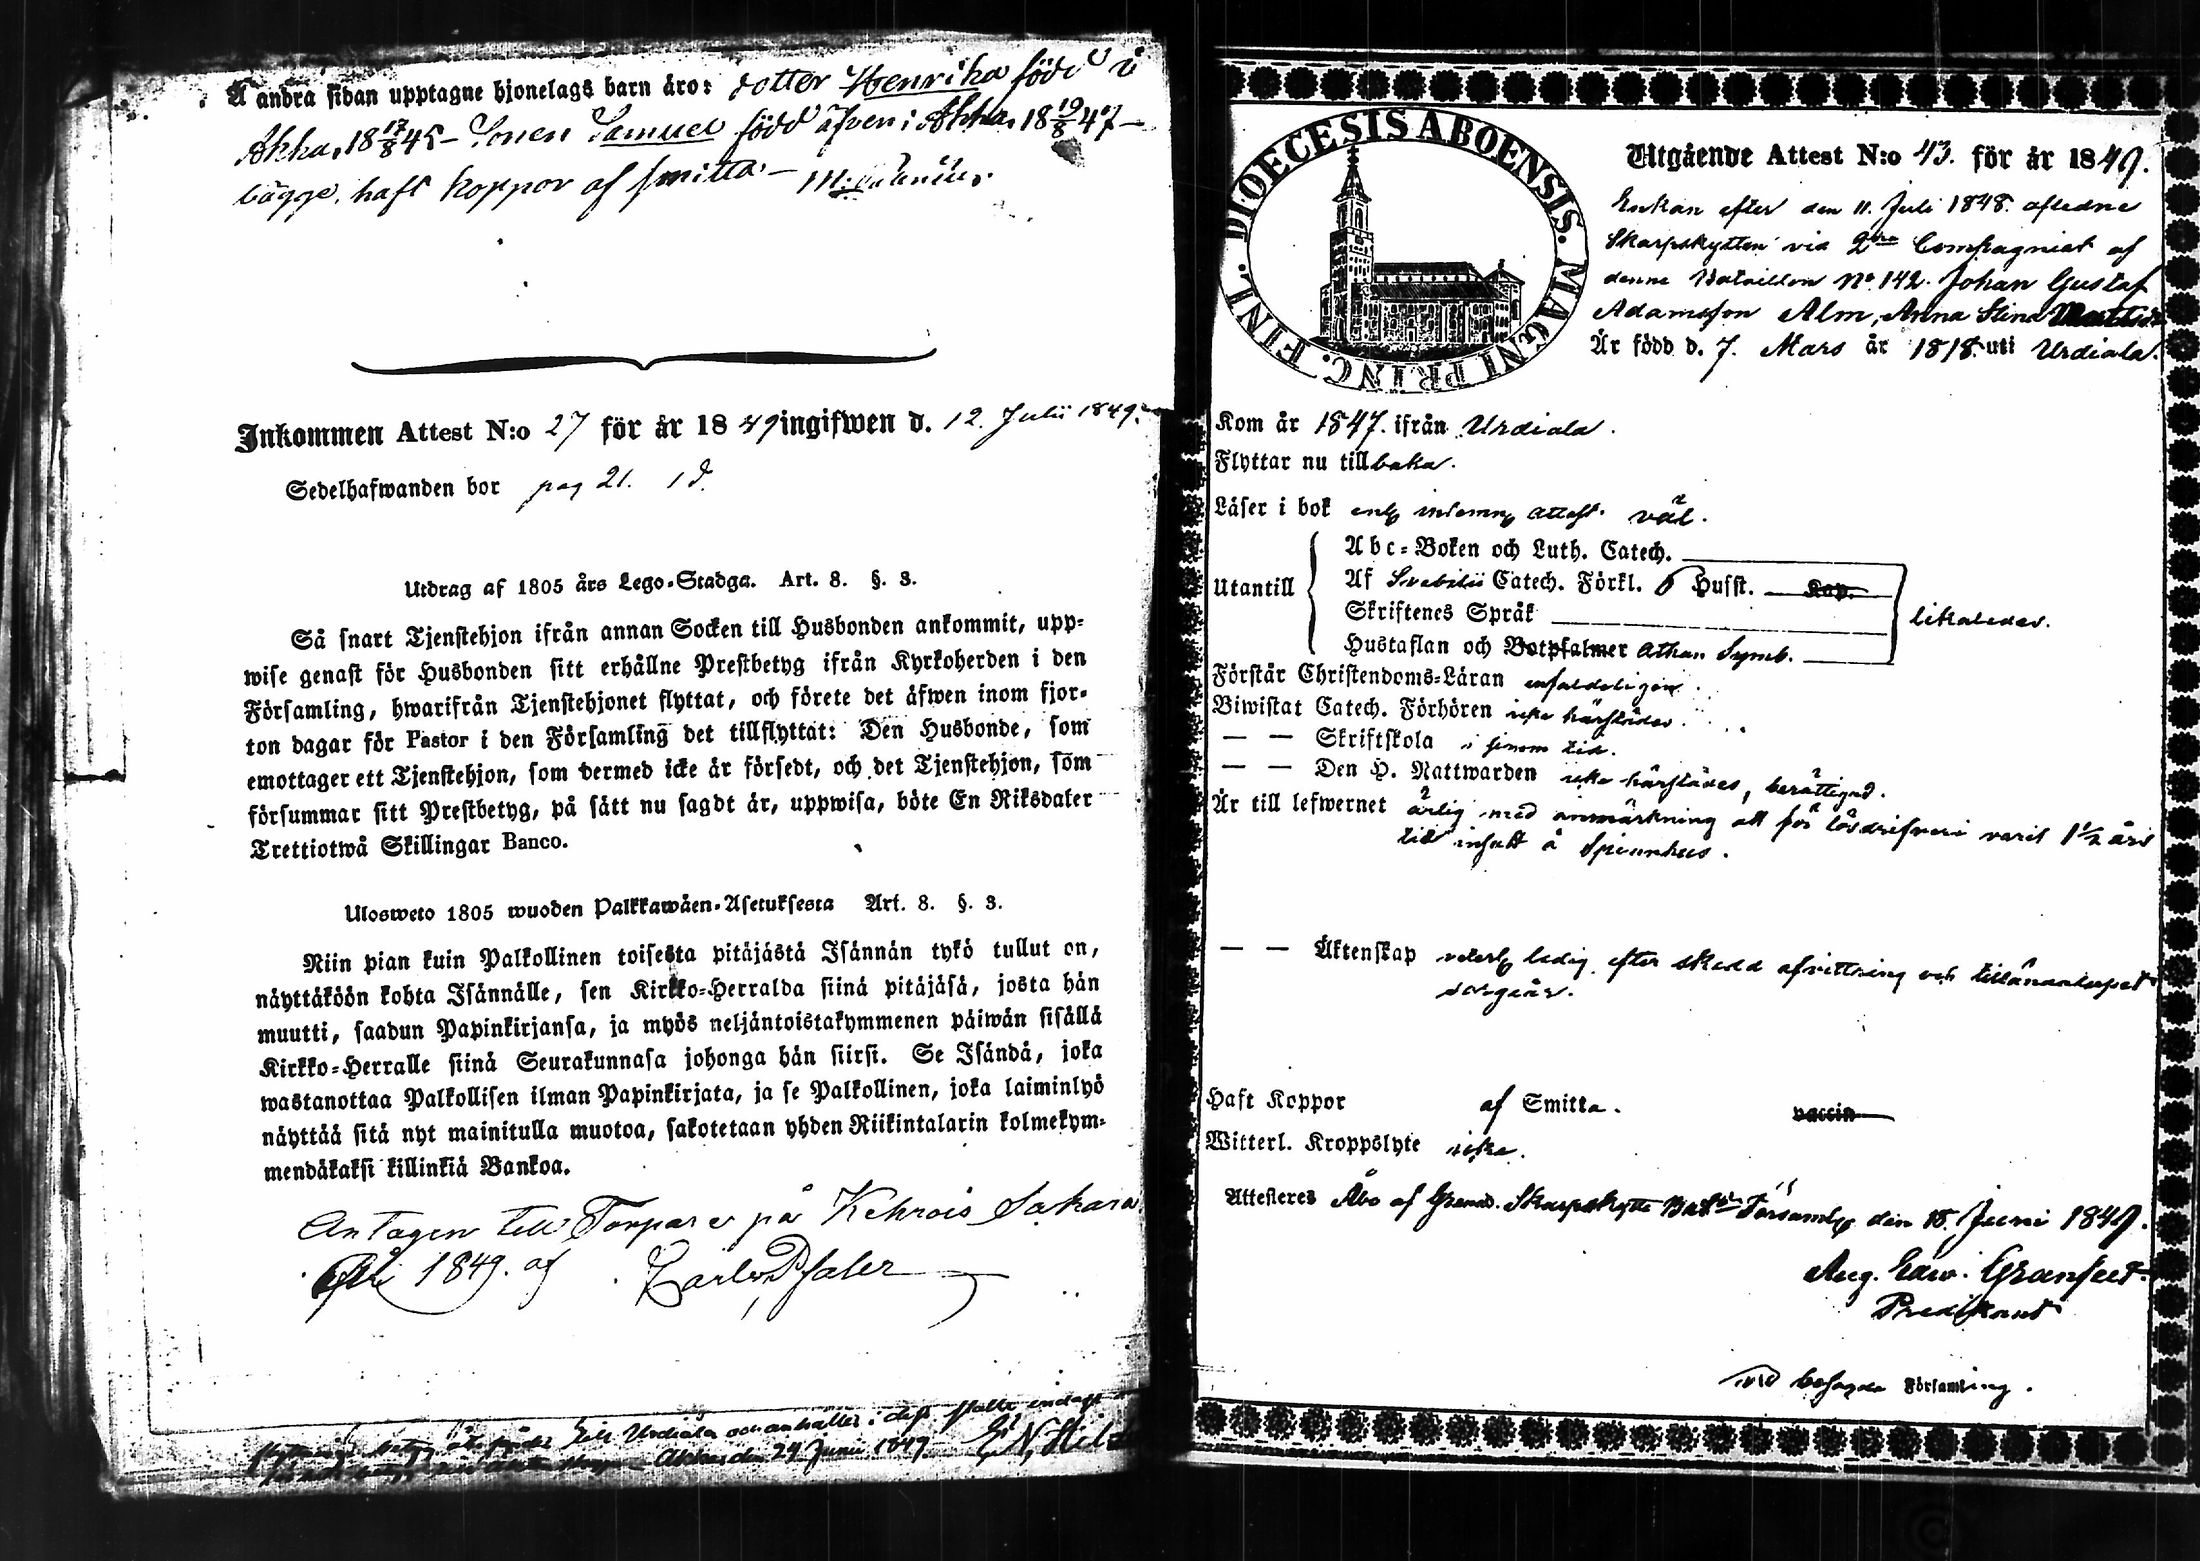 Å andra sidan upptagne hjonelags barn äro: dotter Henrika född i
Akka, 18 17/8 45 – Sonen Samuel född äfven i Akka, 18 19/8 47 –
bägge, haft koppor af smitta. –
Inkommen Attest N:o 27 för år 1849 ingifwen d. 12. Julii 1849.
Sedelhafwanden bor pag 21.
Utdrag af 1805 års Lego-Stadga. Art. 8. §. 3.
Så snart Tjenstehjon ifrån annan Socken till Husbonden ankommit, upp-
wise genast för Husbonden sitt erhållne Prestbetyg ifrån Kyrkoherden i den
Församling, hwarifrån Tjenstehjonet flyttat, och förete det äfwen inom fjor-
ton dagar för Pastor i den Församling det tillflyttat: Den Husbonde, som
emottager ett Tjenstehjon, som dermed icke är försedt, och det Tjenstehjon, som
försummar sitt Prestbetyg, på sätt nu sagdt är, uppwisa, böte En Riksdaler
Trettiotwå Skillingar Banco.
Ulosweto 1805 wuoden Palkkawäen-Asetuksesta Art. 8. §. 3.
Niin pian kuin Palkollinen toisesta pitäjästä Isännän tykö tullut on,
näyttäköön kohta Isännälle, sen Kirkko-Herralda siinä pitäjäsä, josta hän
muutti, saadun Papinkirjansa, ja myös neljäntoistakymmenen päiwän sisällä
Kirkko-Herralle siinä Seurakunnasa johonga hän siirsi. Se Isändä, joka
wastanottaa Palkollisen ilman Papinkirjata, ja se Palkollinen, joka laiminlyö
näyttää sitä nyt mainitulla muotoa, sakotetaan yhden Riikintalarin kolmekym-
mendäkaksi killinkiä Bankoa.
Antagen till Torpare på Kehrois Sakara
1849. af
till Urdiala och anhåller i dess ställe
Akkas den 24 Juni 1849
DIOECESIS ABOENSIS. MAGNI PRINC. FINL.
Utgående Attest N:o 43. för år 1849.
Enkan efter den 11. Juli 1848. aflidne
Skarpskytten vid 2dra Compagniet af
denne Bataillon No 142. Johan Gustaf
Adamsson Alm, Anna Stina
Är född d. 7. Mars år 1818. uti Urdiala.
Kom år 1847. ifrån Urdiala.
Flyttar nu tillbaka.
Läser i bok enl. attest. väl.
Utantill
Abc-Boken och Luth. Catech.
Af Svebilii Catech. Förkl. o Husst. Kap.
Skriftenes Språk
likaledes.
Hustaflan och Botpsalmer Athan Symb.
Förstår Christendoms-Läran enfaldeligen.
Biwistat Catech. Förhören icke härstädes.
— — Skriftskola i sinom tid.
— — Den H. Nattwarden icke härstädes, berättigad.
Är till lefwernet ärlig med anmärkning att för lösdrifveri varit 1½ års
tid insatt å Spinnhus.
— — Äktenskap ledig efter skedd afvittring och tilländalupet
sorgeår.
Haft Koppor af Smitta. vaccin
Witterl. Kroppslyte icke.
Attesteres Åbo af Grenad. Skarpskytte Församl. den 18. Juni 1849.
Aug. Edw. Granfelt.
Predikant
vid besagde Församling.